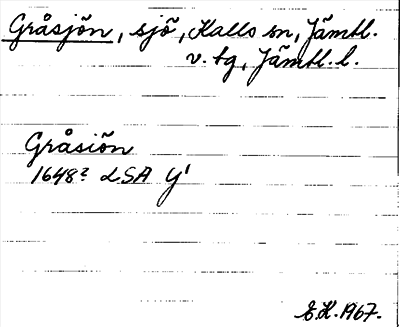 Gråsjön, sjö, Kalls sn, Jämtl.
v. tg, Jämtl. l.
Gråsiön
1648? LSA Y¹
E.K. 1967.